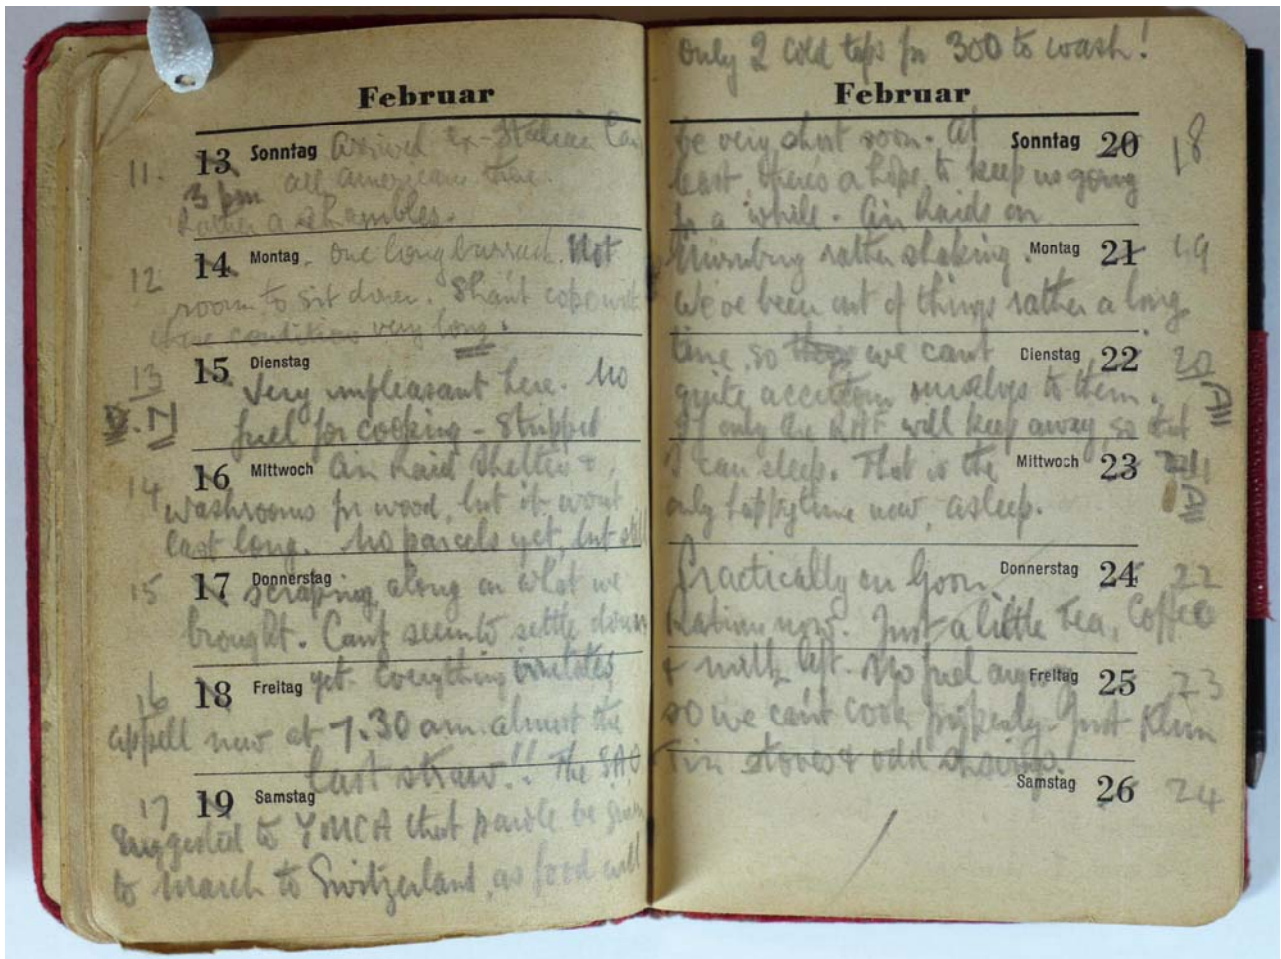 Februar
11. 13 Sonntag Arrived ex-Italian
3 pm all American there.
Rather a shambles.
12 14 Montag. One long barrack. Not
room to sit down. Shan't cope with
these conditions very long.
13 15 Dienstag
Very unpleasant here. No
fuel for cooking - Stripped
14 16 Mittwoch Air Raid Shelters +
washrooms for wood, but it wont
last long. No parcels yet, but still
15 17 Donnerstag scraping along on what we
brought. Cant seem to settle down
16 18 Freitag yet. Everything irritates
appell now at 7.30 am. almost the
last straw!! The SAO
17 19 Samstag
suggested to YMCA that parole be given
to march to Switzerland, as food will
only 2 cold taps for 300 to wash!
Februar
be very short soon. At Sonntag 20 18
least there's a hope to keep us going
for a while. Air Raids on
Nürnburg rather shaking. Montag 21 19
We've been out of things rather a long
time, so we cant Dienstag 22 20
quite accustom ourselves to them. A11
If only the RAF will keep away, so that
I can sleep. That is the Mittwoch 23 A11
only happy time now, asleep.
Practically on Goon Donnerstag 24 22
Rations now. Just a little Tea, Coffee
+ milk left. No fuel anyway Freitag 25 23
so we can't cook properly. Just Klim
Tin stoves + odd shavings.
Samstag 26 24